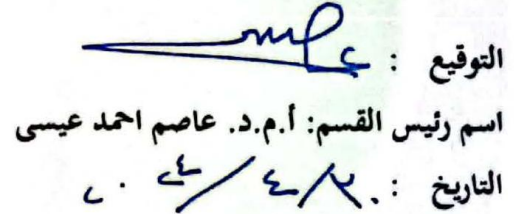 التوقيع :
اسم رئيس القسم: أ.م.د. عاصم احمد عيسى
التاريخ :